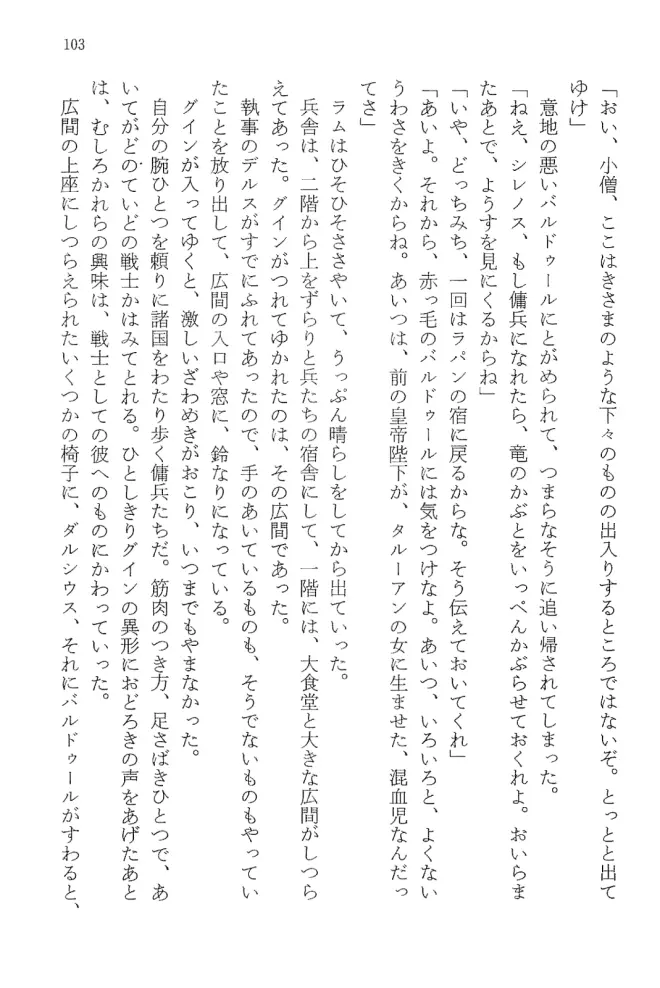 103
「おい、小僧、ここはきさまのような下々のものの出入りするところではないぞ。とっとと出て
ゆけ」
意地の悪いバルドゥールにとがめられて、つまらなそうに追い帰されてしまった。
「ねえ、シレノス、もし傭兵になれたら、竜のかぶとをいっぺんかぶらせておくれよ。おいらま
たあとで、ようすを見にくるからね」
「いや、どっちみち、一回はラパンの宿に戻るからな。そう伝えておいてくれ」
「あいよ。それから、赤っ毛のバルドゥールには気をつけなよ。あいつ、いろいろと、よくない
うわさをきくからね。あいつは、前の皇帝陛下が、タルーアンの女に生ませた、混血児なんだっ
てさ」
ラムはひそひそささやいて、うっぷん晴らしをしてから出ていった。
兵舎は、二階から上をずらりと兵たちの宿舎にして、一階には、大食堂と大きな広間がしつら
えてあった。グインがつれてゆかれたのは、その広間であった。
執事のデルスがすでにふれてあったので、手のあいているものも、そうでないものもやってい
たことを放り出して、広間の入口や窓に、鈴なりになっている。
グインが入ってゆくと、激しいざわめきがおこり、いつまでもやまなかった。
自分の腕ひとつを頼りに諸国をわたり歩く傭兵たちだ。筋肉のつき方、足さばきひとつで、あ
いてがどのていどの戦士かはみてとれる。ひとしきりグインの異形におどろきの声をあげたあと
は、むしろかれらの興味は、戦士としての彼へのものにかわっていった。
広間の上座にしつらえられたいくつかの椅子に、ダルシウス、それにバルドゥールがすわると、